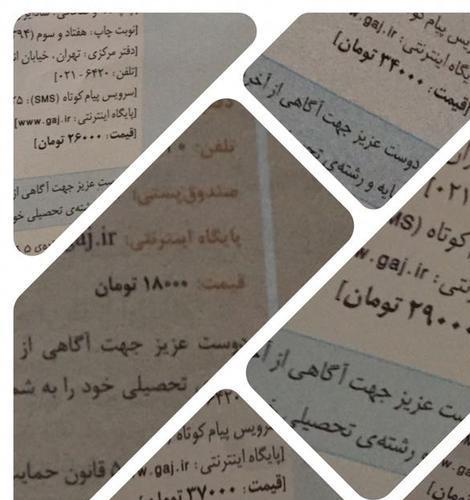 [نوبت چاپ: هفتاد و سوم (۳۹۴
[دفتر مرکزی: تهران، خیابان
[تلفن: ۶۴۲۰ - ۰۲۱
[سرویس پیام کوتاه (SMS): ۲۵
[پایگاه اینترنتی: www.gaj.ir]
[قیمت: ۲۶۰۰۰ تومان]
دوست عزیز جهت آگاهی از
رشته‌ی تحصیلی
پیام کو
پایگاه اینترنتی:
[قیمت: ۳۴۰۰۰ تومان]
دوست عزیز جهت آگاهی از آخر
پایه و رشته‌ی تحصی
تلفن:
صندوق پستی:
پایگاه اینترنتی: gaj.ir
قیمت: ۱۸۰۰۰ تومان
دوست عزیز جهت آگاهی از
تحصیلی خود را به شم
قانون حمایت
۰۲۱]
کوتاه (MS
w.gaj.ir :
۲۹۰۰۰ تومان]
ست عزیز جهت آگاهی از آ
و رشته‌ی تحصیلی
سرویس پیام کوتاه
[پایگاه اینترنتی: w.gaj.ir
[قیمت: ۳۷۰۰۰ تومان]